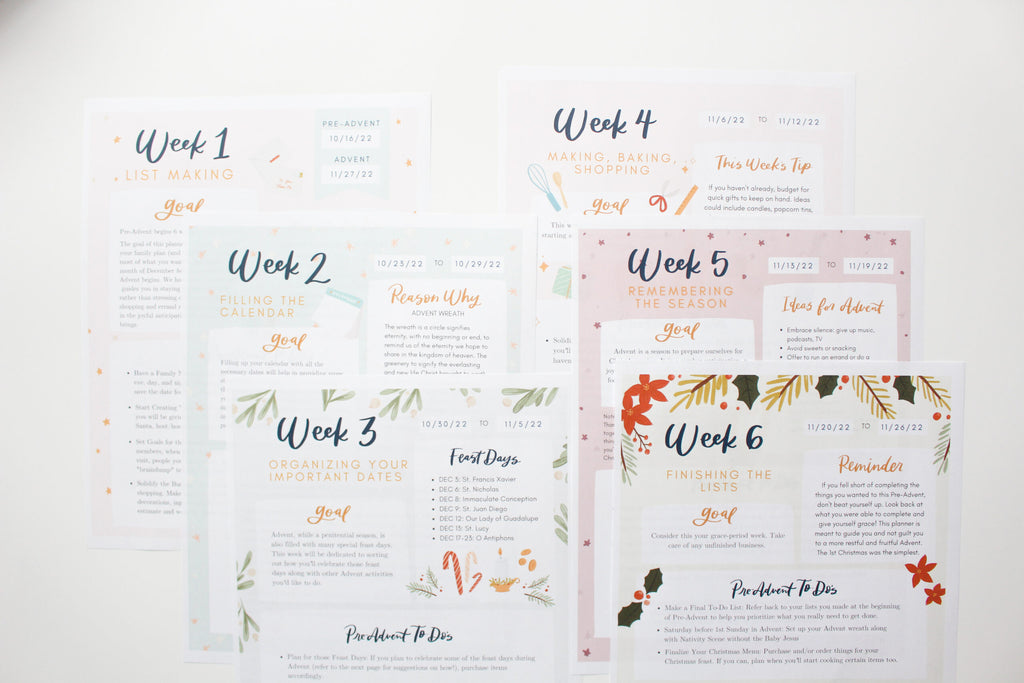 Week 1
LIST MAKING
PRE-ADVENT
10/16/22
ADVENT
11/27/22
goal
Pre-Advent begins 6 w
The goal of this planne
your family plan (and
most of what you want
month of December be
Advent begins. We ho
guides you in staying
rather than stressing o
shopping and errand r
in the joyful anticipat
brings.
Have a Family M
eve, day, and
save the date fo
Start Creating
you will be givi
Santa, host/hos
Set Goals for th
members, when
visit, people you
"braindump"
Solidify the Bu
shopping. Make
decorations, ing
estimate and w
Week 2
FILLING THE
CALENDAR
10/23/22 TO 10/29/22
goal
Filling up your calendar with all the
necessary dates will help in providing some
Reason Why
ADVENT WREATH
The wreath is a circle signifies
eternity, with no beginning or end, to
remind us of the eternity we hope to
share in the kingdom of heaven. The
greenery to signify the everlasting
and new life Christ brought to
Week 3
ORGANIZING YOUR
IMPORTANT DATES
10/30/22 TO 11/5/22
goal
Advent, while a penitential season, is
also filled with many special feast days.
This week will be dedicated to sorting
out how you'll celebrate those feast
days along with other Advent activities
you'd like to do.
Feast Days
• DEC 3: St. Francis Xavier
• DEC 6: St. Nicholas
• DEC 8: Immaculate Conception
• DEC 9: St. Juan Diego
• DEC 12: Our Lady of Guadalupe
• DEC 13: St. Lucy
• DEC 17-23: O Antiphons
Pre-Advent To Do's
• Plan for those Feast Days: If you plan to celebrate some of the feast days during
Advent (refer to the next page for suggestions on how!), purchase items
accordingly.
Week 4
MAKING, BAKING,
SHOPPING
11/6/22 TO 11/12/22
goal
This w
starting
Solidi
you'll
haven
This Week's Tip
If you haven't already, budget for
quick gifts to keep on hand. Ideas
could include candles, popcorn tins,
Week 5
REMEMBERING
THE SEASON
11/13/22 TO 11/19/22
goal
Advent is a season to prepare ourselves for
Ideas for Advent
• Embrace silence: give up music,
podcasts, TV
• Avoid sweets or snacking
• Offer to run an errand or do a
Week 6
FINISHING THE
LISTS
11/20/22 TO 11/26/22
goal
Consider this your grace-period week. Take
care of any unfinished business.
Reminder
If you fell short of completing the
things you wanted to this Pre-Advent,
don't beat yourself up. Look back at
what you were able to complete and
give yourself grace! This planner is
meant to guide you and not guilt you
to a more restful and fruitful Advent.
The 1st Christmas was the simplest.
Pre-Advent To Do's
• Make a Final To-Do List: Refer back to your lists you made at the beginning
of Pre-Advent to help you prioritize what you really need to get done.
• Saturday before 1st Sunday in Advent: Set up your Advent wreath along
with Nativity Scene without the Baby Jesus
• Finalize Your Christmas Menu: Purchase and/or order things for your
Christmas feast. If you can, plan when you'll start cooking certain items too.